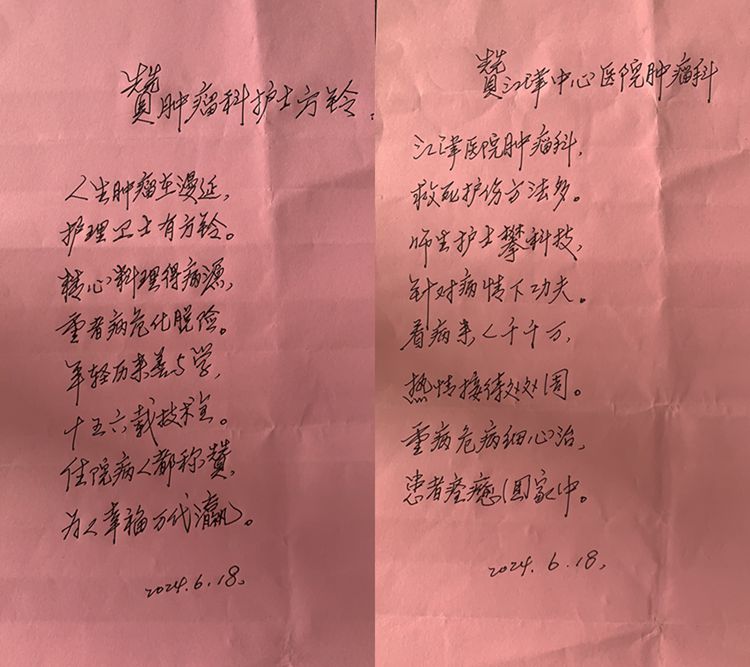 赞肿瘤科护士方玲。
人生肿瘤至漫延,
护理卫士有方玲。
精心料理得病源,
重者病危化脱险。
年轻历来善与学,
十五六载技术全。
住院病人都称赞,
为人幸福万代瀛。
2024.6.18.
赞江津中心医院肿瘤科
江津医院肿瘤科,
救死护伤方法多。
师生护士攀科技,
针对病情下功夫。
看病来人千千万,
热情接待处处周。
重病危病细心治,
患者痊癒回家中。
2024.6.18.